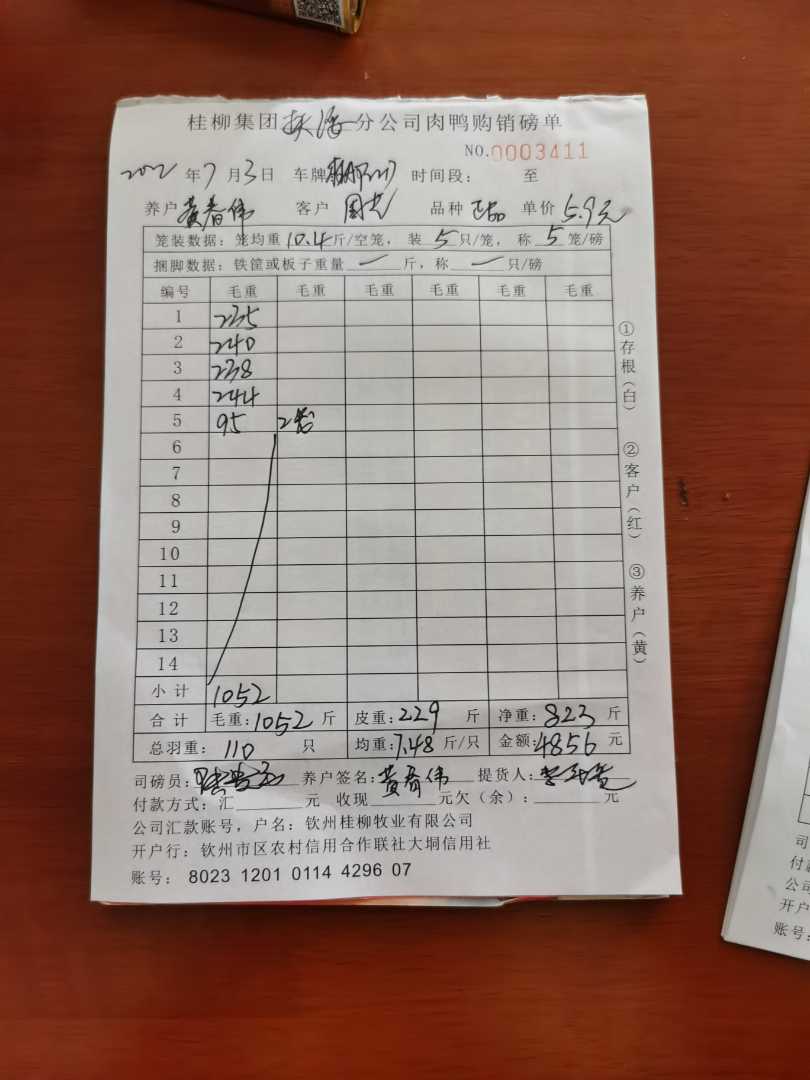 桂柳集团 分公司肉鸭购销磅单
NO.0003411
年7月3日 车牌 时间段： 至
养户 黄春伟 客户 品种 正品 单价 5.9元
笼装数据：笼均重10.4斤/空笼，装 5 只/笼，称 5 笼/磅
捆脚数据：铁筐或板子重量 一 斤，称 一 只/磅
编号 毛重 毛重 毛重 毛重 毛重 毛重
1 235
2 240
3 238
4 244
5 95 2笼
6
7
8
9
10
11
12
13
14
小计 1052
合计 毛重：1052 斤 皮重：229 斤 净重：823 斤
总羽重： 110 只 均重：7.48 斤/只 金额：4856 元
司磅员： 养户签名：黄春伟 提货人：
付款方式：汇 元 收现 元欠（余）： 元
公司汇款账号，户名：钦州桂柳牧业有限公司
开户行：钦州市区农村信用合作联社大垌信用社
账号： 8023 1201 0114 4296 07
①存根（白）
②客户（红）
③养户（黄）
司
付款
公司
开户
账号：